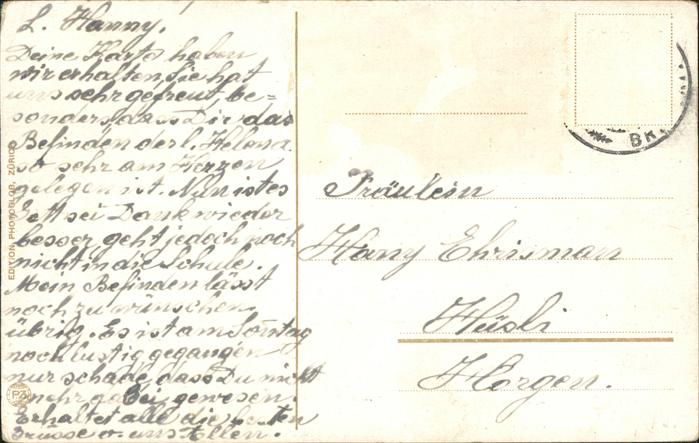 L. Hanny.
Deine Karte haben
wir erhalten sie hat
uns sehr gefreut, be=
sonders dass Dir das
Befinden der l. Helena
so sehr am Herzen
gelegen ist. Nun ist es
Gott sei Dank wieder
besser geht jedoch noch
nicht in die Schule.
Mein Befinden lässt
noch zu wünschen
übrig. Es ist am Sonntag
noch lustig gegangen
nur schade, dass Du nicht
mehr gewesen.
Erhaltet alle die besten
Grüsse v. uns Allen.
Fräulein
Hany Ehrisman
Hüsli
Horgen.
EDITION PHOTOGLOB, ZÜRICH